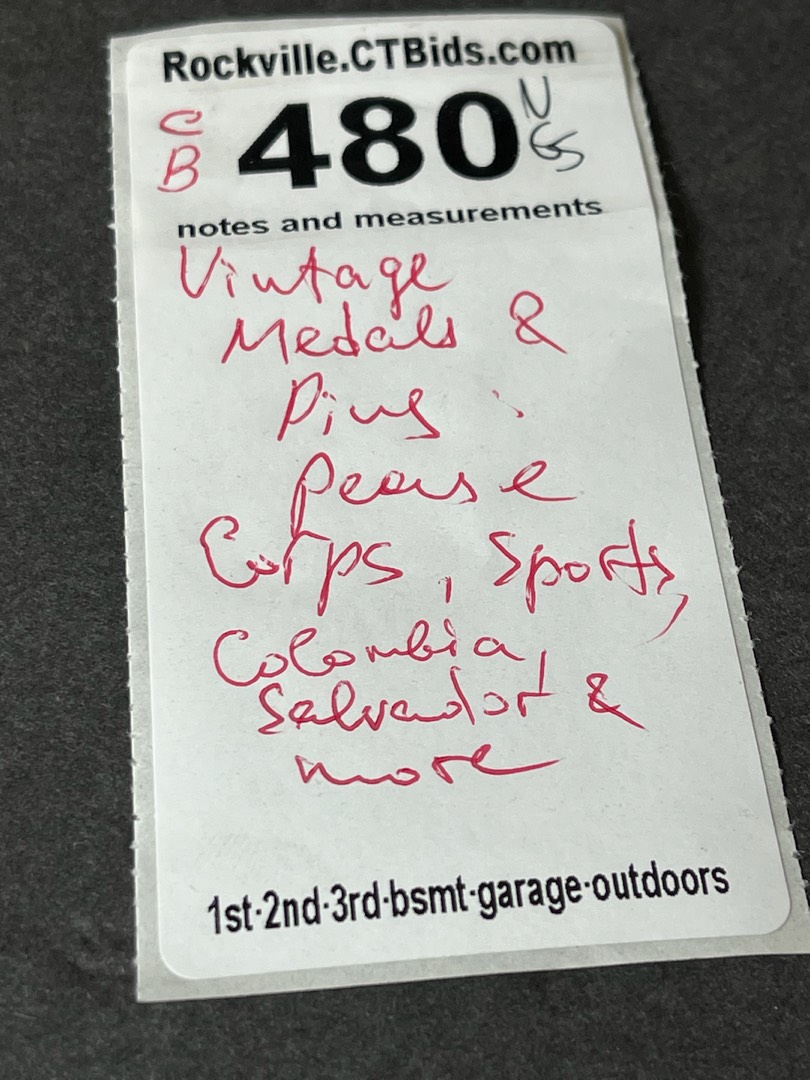 Rockville.CTBids.com
C B 480 N GS
notes and measurements
Vintage
Medals &
Pins :
Pease
Corps, Sports,
Colombia,
Salvador &
more
1st·2nd·3rd·bsmt·garage·outdoors